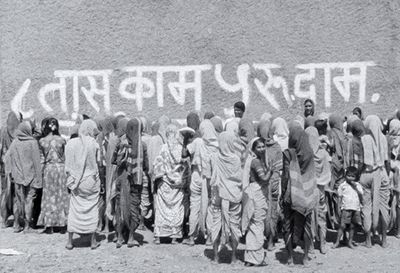 ८ तास काम पुरू दाम.